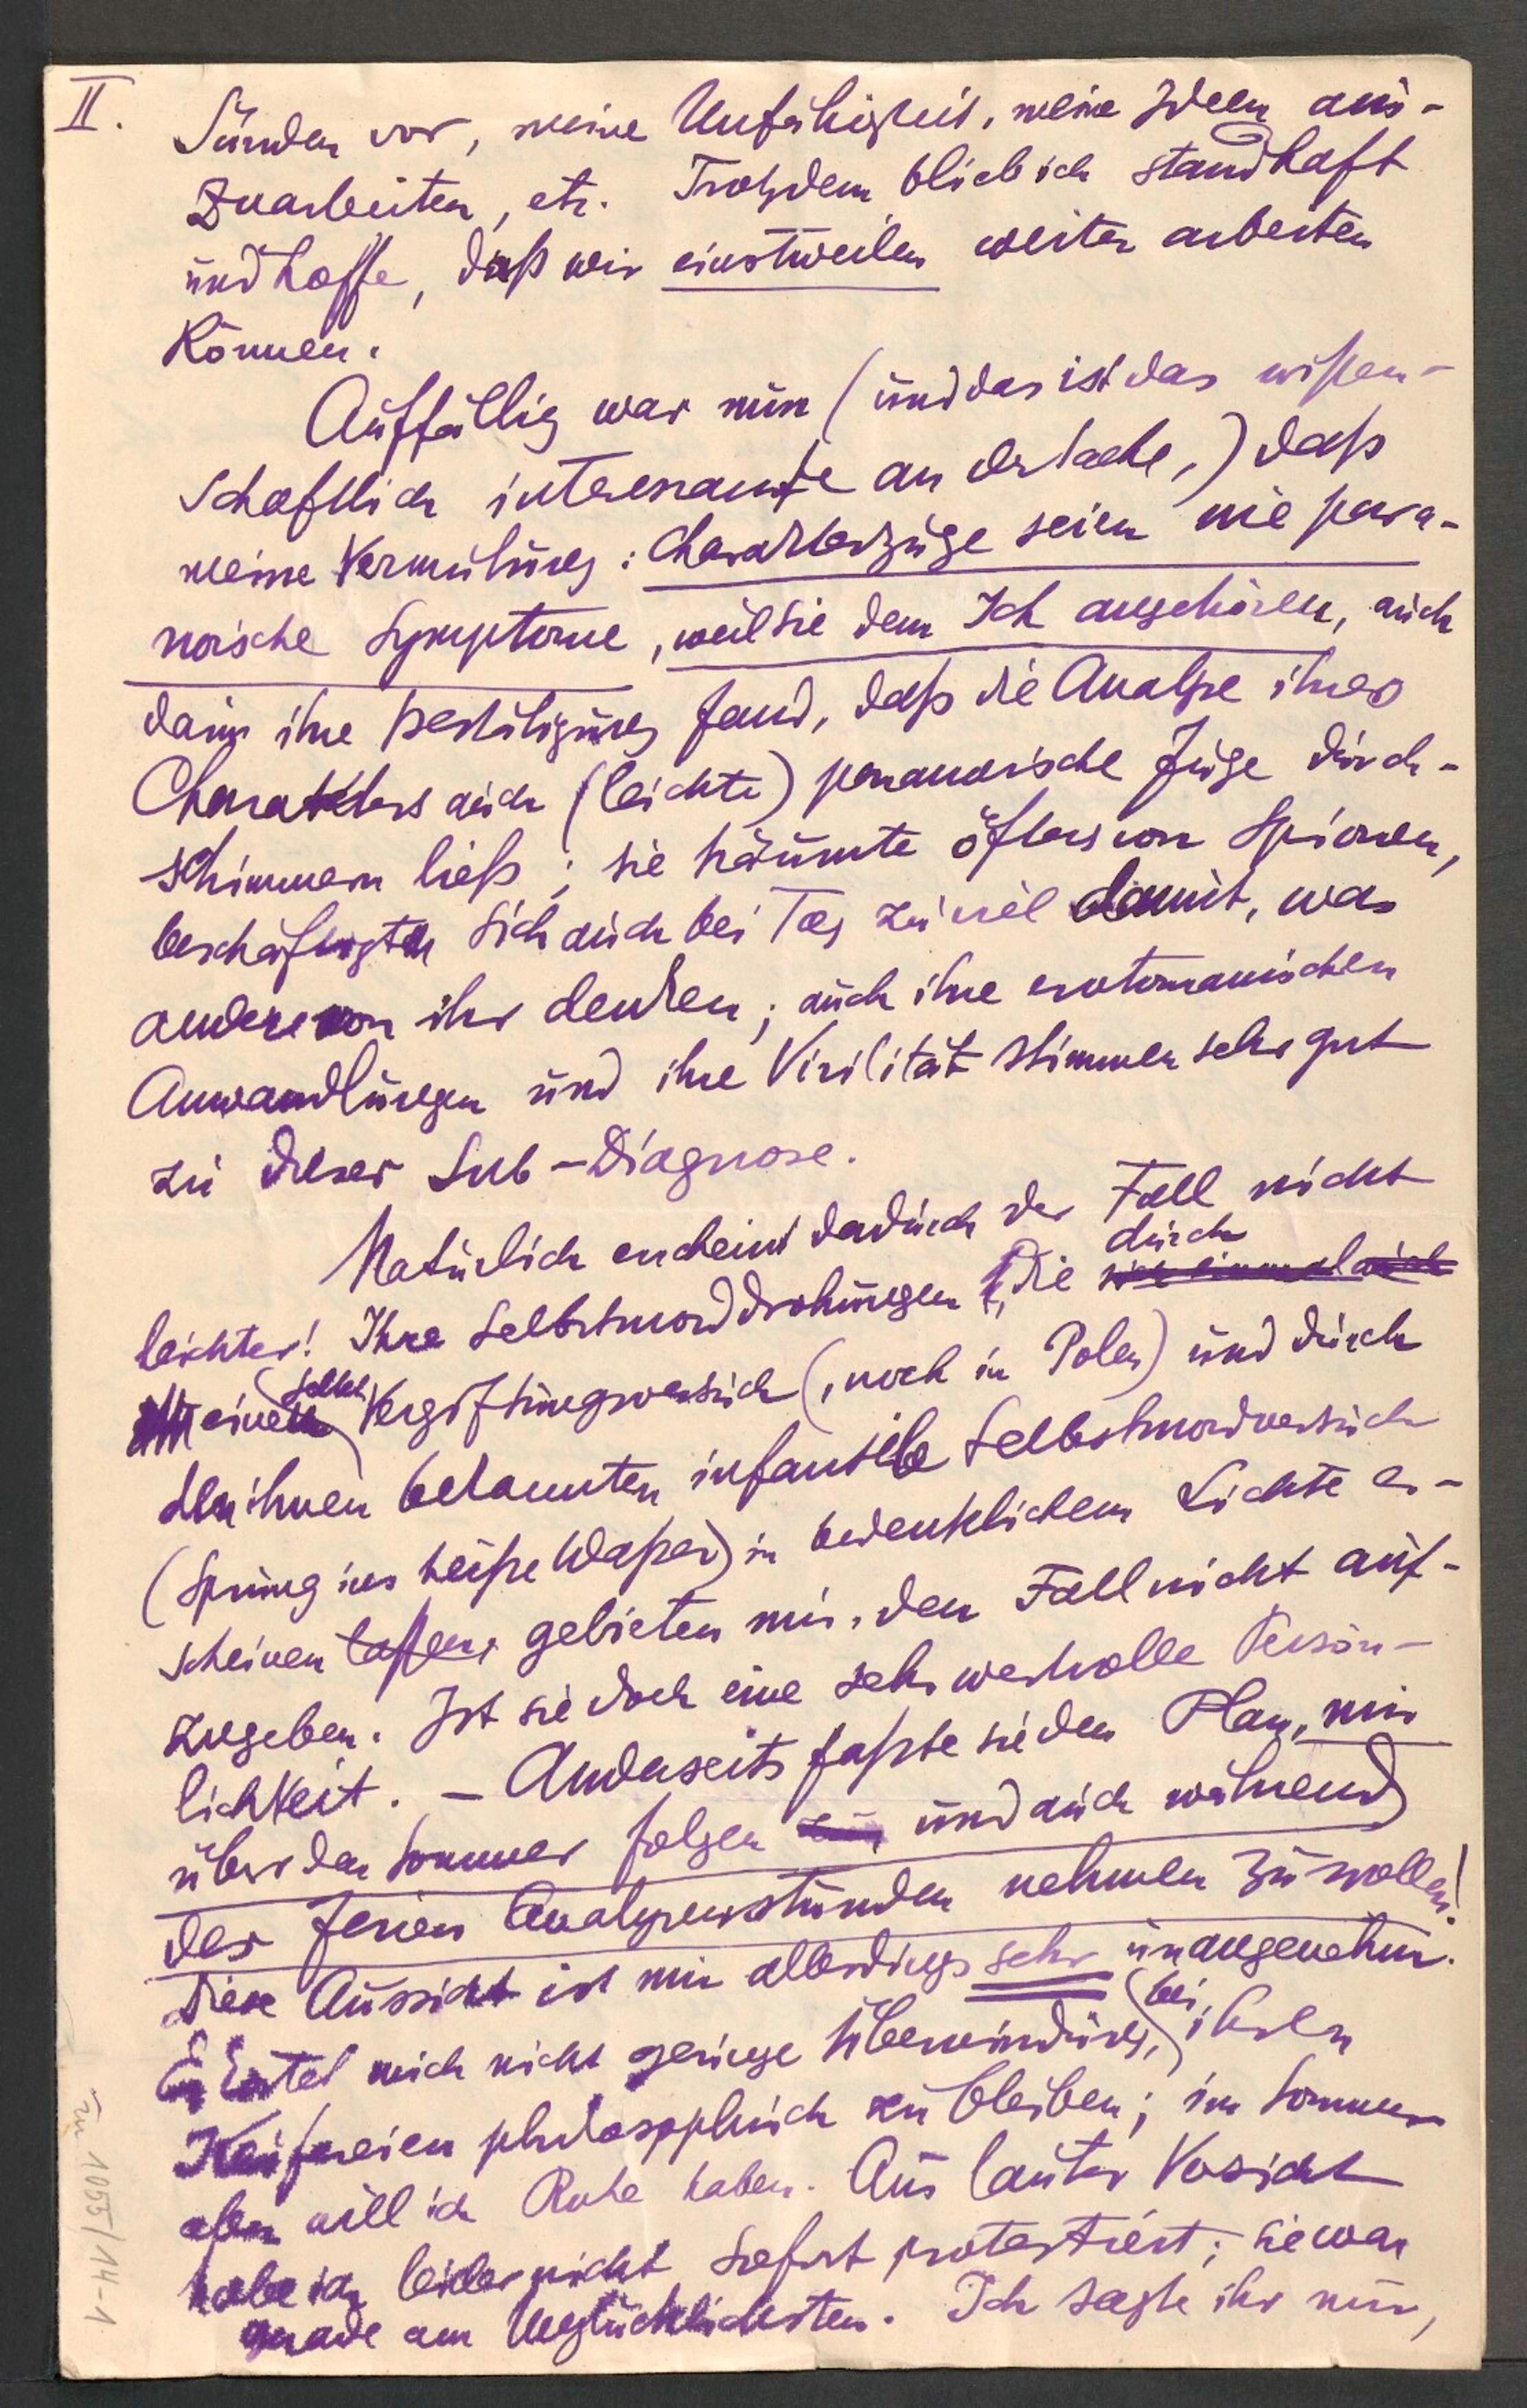 II.
Sünden vor, meine Unfähigkeit, meine Ideen aus-
zuarbeiten, etc. Trotzdem blieb ich standhaft
und hoffe, daß wir einstweilen weiter arbeiten
können.
Auffällig war nun (und das ist das wißen-
schaftlich interessante an der Sache,) daß
meine Vermutung: Charakterzüge seien wie para-
noische Symptome, weil sie dem Ich angehören, auch
darin ihre Bestätigung fand, daß die Analyse ihres
Charakters auch (leichte) paranoische Züge durch-
schimmern ließ; sie träumte öfters von Spionen,
beschäftigte sich auch bei Tag zu viel damit, was
andere von ihr denken; auch ihre erotomanischen
Anwandlungen und ihre Virilität stimmen sehr gut
zu dieser Sub-Diagnose.
Natürlich erscheint dadurch der Fall nicht
leichter! Ihre Selbstmorddrohungen, die durch
einen Selbst Vergiftungsversuch (, noch in Polen) und durch
den ihnen bekannten infantile Selbstmordversuch
(Sprung ins heiße Waßer) in bedenklichem Lichte er-
scheinen laßen, gebieten mir, den Fall nicht auf-
zugeben. Ist sie doch eine sehr wertvolle Persön-
lichkeit. – Anderseits faßte sie den Plan, mir
über den Sommer folgen und auch während
der Ferien Analysenstunden nehmen zu wollen!
Diese Aussicht ist mir allerdings sehr unangenehm.
Es kostet mich nicht geringe Überwindung, bei ihren
Keifereien philosophisch zu bleiben; im Sommer
aber will ich Ruhe haben. Aus lauter Vorsicht
habe ich leider nicht sofort protestiert; sie war
gerade am Unglücklichsten. Ich sagte ihr nur,
Fer 1055/14-1